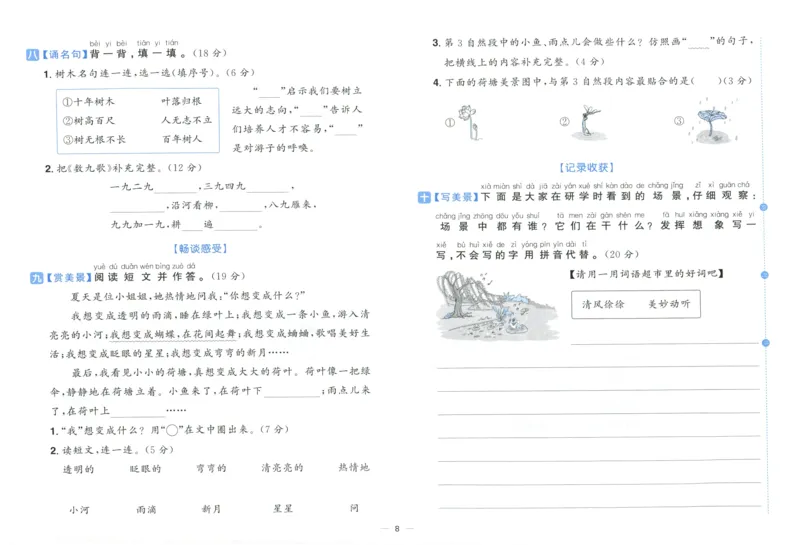 bèi yi bèi tián yi tián
八【诵名句】背一背,填一填。(18分)
1. 树木名句连一连,选一选(填序号)。(6分)
①十年树木 叶落归根
②树高百尺 人无志不立
③树无根不长 百年树人
“____”启示我们要树立
远大的志向,“____”告诉人
们培养人才不容易,“____”
是对游子的呼唤。
2. 把《数九歌》补充完整。(12分)
一九二九________,三九四九________,
________,沿河看柳,________,八九雁来,
九九加一九,耕__遍________。
【畅谈感受】
yuè dú duǎn wén bìng zuò dá
九【赏美景】阅读短文并作答。(19分)
夏天是位小姐姐,她热情地问我:“你想变成什么?”
我想变成透明的雨滴,睡在绿叶上;我想变成一条小鱼,游入清
亮亮的小河;我想变成蝴蝶,在花间起舞;我想变成蝈蝈,歌唱美好生
活;我想变成眨眼的星星;我想变成弯弯的新月……
最后,我看见小小的荷塘,真想变成大大的荷叶。荷叶像一把绿
伞,静静地在荷塘立着。小鱼来了,在荷叶下________;雨点儿来
了,在荷叶上________……
1. “我”想变成什么?用“○”在文中圈出来。(7分)
2. 读短文,连一连。(5分)
透明的 眨眼的 弯弯的 清亮亮的 热情地
小河 雨滴 新月 星星 问
3. 第3自然段中的小鱼、雨点儿会做些什么?仿照画“____”的句子,
把横线上的内容补充完整。(4分)
4. 下面的荷塘美景图中,与第3自然段内容最贴合的是( )(3分)
① ② ③
【记录收获】
xià miàn shì dà jiā zài yán xué shí kàn dào de chǎng jǐng zǐ xì guān chá
十【写美景】下面是大家在研学时看到的场景,仔细观察:
chǎng jǐng zhōng dōu yǒu shuí tā men zài gàn shén me fā huī xiǎng xiàng xiě yi
场景中都有谁?它们在干什么?发挥想象写一
xiě bú huì xiě de zì yòng pīn yīn dài tì
写,不会写的字用拼音代替。(20分)
【请用一用词语超市里的好词吧】
清风徐徐 美妙动听
8